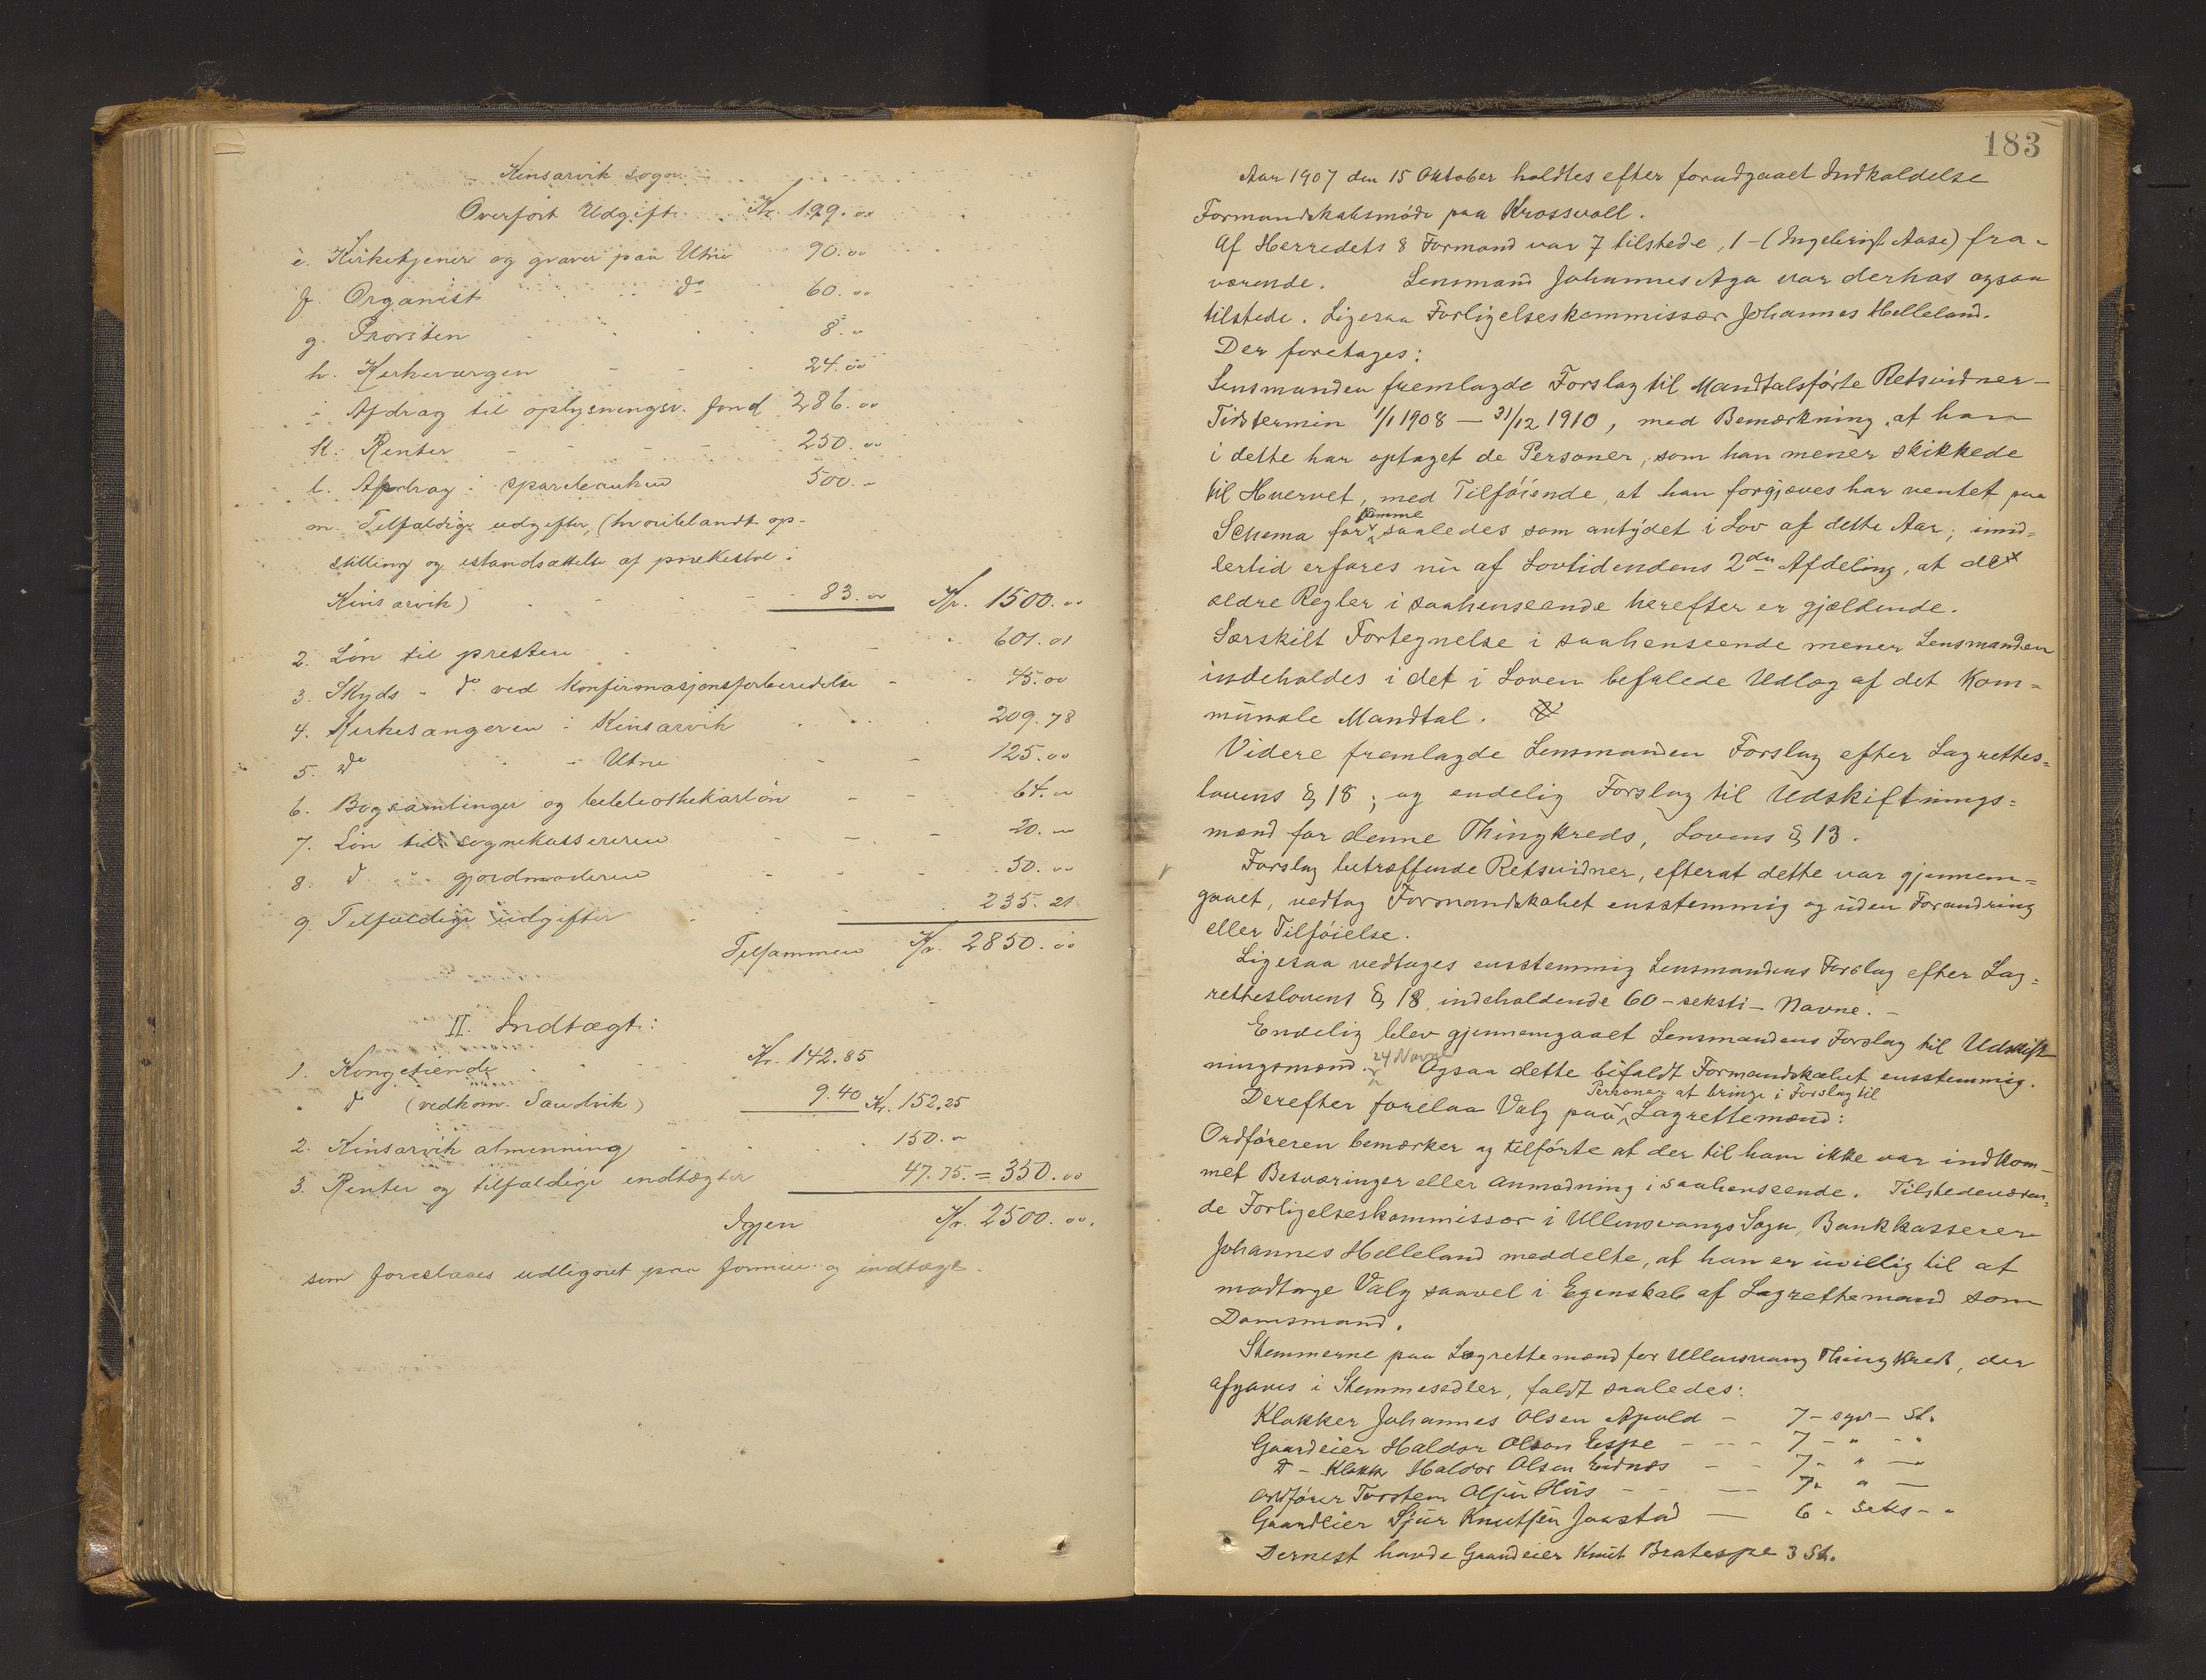 - Kinsarvik sogn -
Overført Udgift. Kr. 199.00
e. Kirketjener og graver paa Utne 90.00
f. Organist do 60.00
g. Provsten 8.00
h. Kirkevergen 24.00
i Afdrag til oplysningsv. fond 286.00
k. Renter 250.00
l. Afdrag i sparebanken 500.00
m. Tilfældige udgifter, (hvoriblandt op-
stilling og istandsættelse af prækestol i
Kinsarvik) 83.00 Kr. 1500.00
2. Løn til presten 601.01
3. Skyds " do ved konfirmasjonsforberedelse 45.00
4. Kirkesangeren i Kinsarvik 209.78
5. do - Utne 125.00
6. Bogsamlinger og bibliothekarløn 64.00
7. Løn til sognekassereren 20.00
8. d " gjordmoderen 50.00
9. Tilfældige udgifter 235.21
Tilsammen Kr. 2850.00
II. Indtægt:
1. Kongetiende Kr. 142.85
" d (vedkom. Sandvik) 9.40 Kr. 152.25
2. Kinsarvik almenning 150.00
3. Renter og tilfældige indtægter 47.75 = 350.00
Igjen Kr. 2500.00.
som foreslaaes udlignet paa formue og indtægt.
183
Aar 1907 den 15 Oktober holdtes efter forudgaaet Indkaldelse
Formandskabsmøde paa Krossvoll.
Af Herredets 8 Formænd var 7 tilstede, 1 - (Ingebrigt Aase) fra-
værende. Lensmand Johannes Aga var derhos ogsaa
tilstede. Ligesaa Forligelseskommissær Johannes Helleland.
Der foretages:
Lensmanden fremlagde Forslag til Mandtalsførte Retsvidner -
Tidstermin 1/1 1908 - 31/12 1910, med Bemærkning, at han
i dette har optaget de Personer, som han mener skikkede
til Hvervet, med Tilføiende, at han forgjæves har ventet paa
Schema for samme saaledes som antydet i Lov af dette Aar; imid-
lertid erfares nu af Lovtidendens 2den Afdeling, at de
ældre Regler i saahenseende herefter er gjældende.
Særskilt Fortegnelse i saahenseende mener Lensmanden
indeholdes i det i Loven befalede Udlæg af det Kom-
munale Mandtal.
Videre fremlagde Lensmanden Forslag efter Lagrettes-
lovens § 18; og endelig Forslag til Udskiftnings-
mænd for denne Thingkreds, Lovens § 13.
Forslag betræffende Retsvidner, efterat dette var gjennem-
gaaet, vedtog Formandskabet enstemmig og uden Forandring
eller Tilføielse.
Ligesaa vedtages enstemmig Lensmandens Forslag efter Lag-
retteslovens § 18, indeholdende 60 - seksti - Navne. -
Endelig blev gjennemgaaet Lensmandens Forslag til Udskift-
ningsmænd. 24 Navne Ogsaa dette bifaldt Formandskabet ensstemmig.
Derefter forelaa Valg paa Personer at bringe i Forslag til Lagrettemænd:
Ordføreren bemærker og tilførte at der til ham ikke var indkom-
met Besværinger eller Anmodning i saahenseende. Tilstedeværen-
de Forligelseskommissær i Ullensvangs Sogn, Bankkasserer
Johannes Helleland meddelte, at han er uvillig til at
modtage Valg saavel i Egenskab af Lagrettemand som
Domsmand.
Stemmerne paa Lagrettemænd for Ullensvang Thingkreds, der
afgaves i Stemmesedler, faldt saaledes:
Klokker Johannes Olsen Apold - 7 - syv - St.
Gaardeier Haldor Olson Espe - - - 7 - " - "
D - Klokker Haldor Olsen Eidnæs - - 7 - " - "
Ordfører Torstein Olsen Hus - - - 7 " -
Gaardeier Sjur Knutsen Jaastad - 6 - seks - "
Dernest havde Gaardeier Knut Bratespe 3 St.